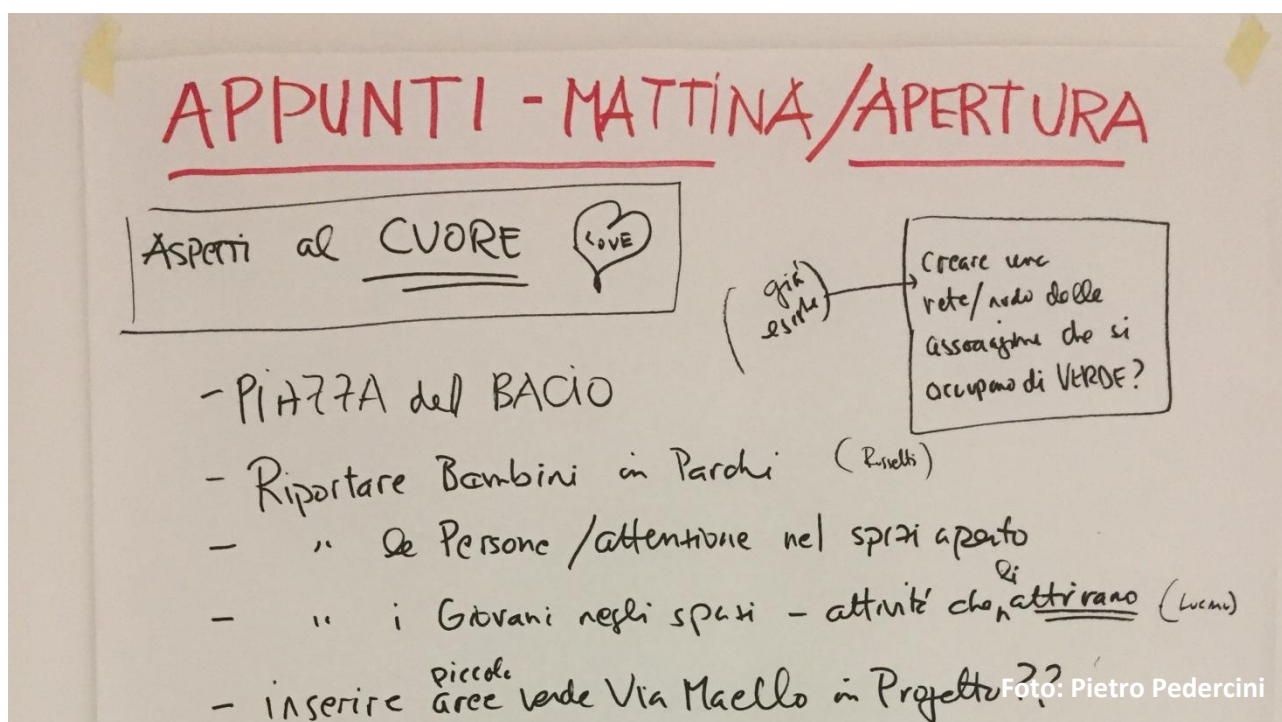 APPUNTI - MATTINA/APERTURA
ASPETTI al CUORE LOVE
(già esiste)
Creare una
rete/nodo delle
associazione che si
occupano di VERDE?
- PIAZZA del BACIO
- Riportare Bambini in Parchi
- " le Persone /attenzione nel spazi aperto
- " i Giovani negli spazi - attività che li attirano
- inserire piccole aree verde Via Maello in Progetto??
Foto: Pietro Pedercini